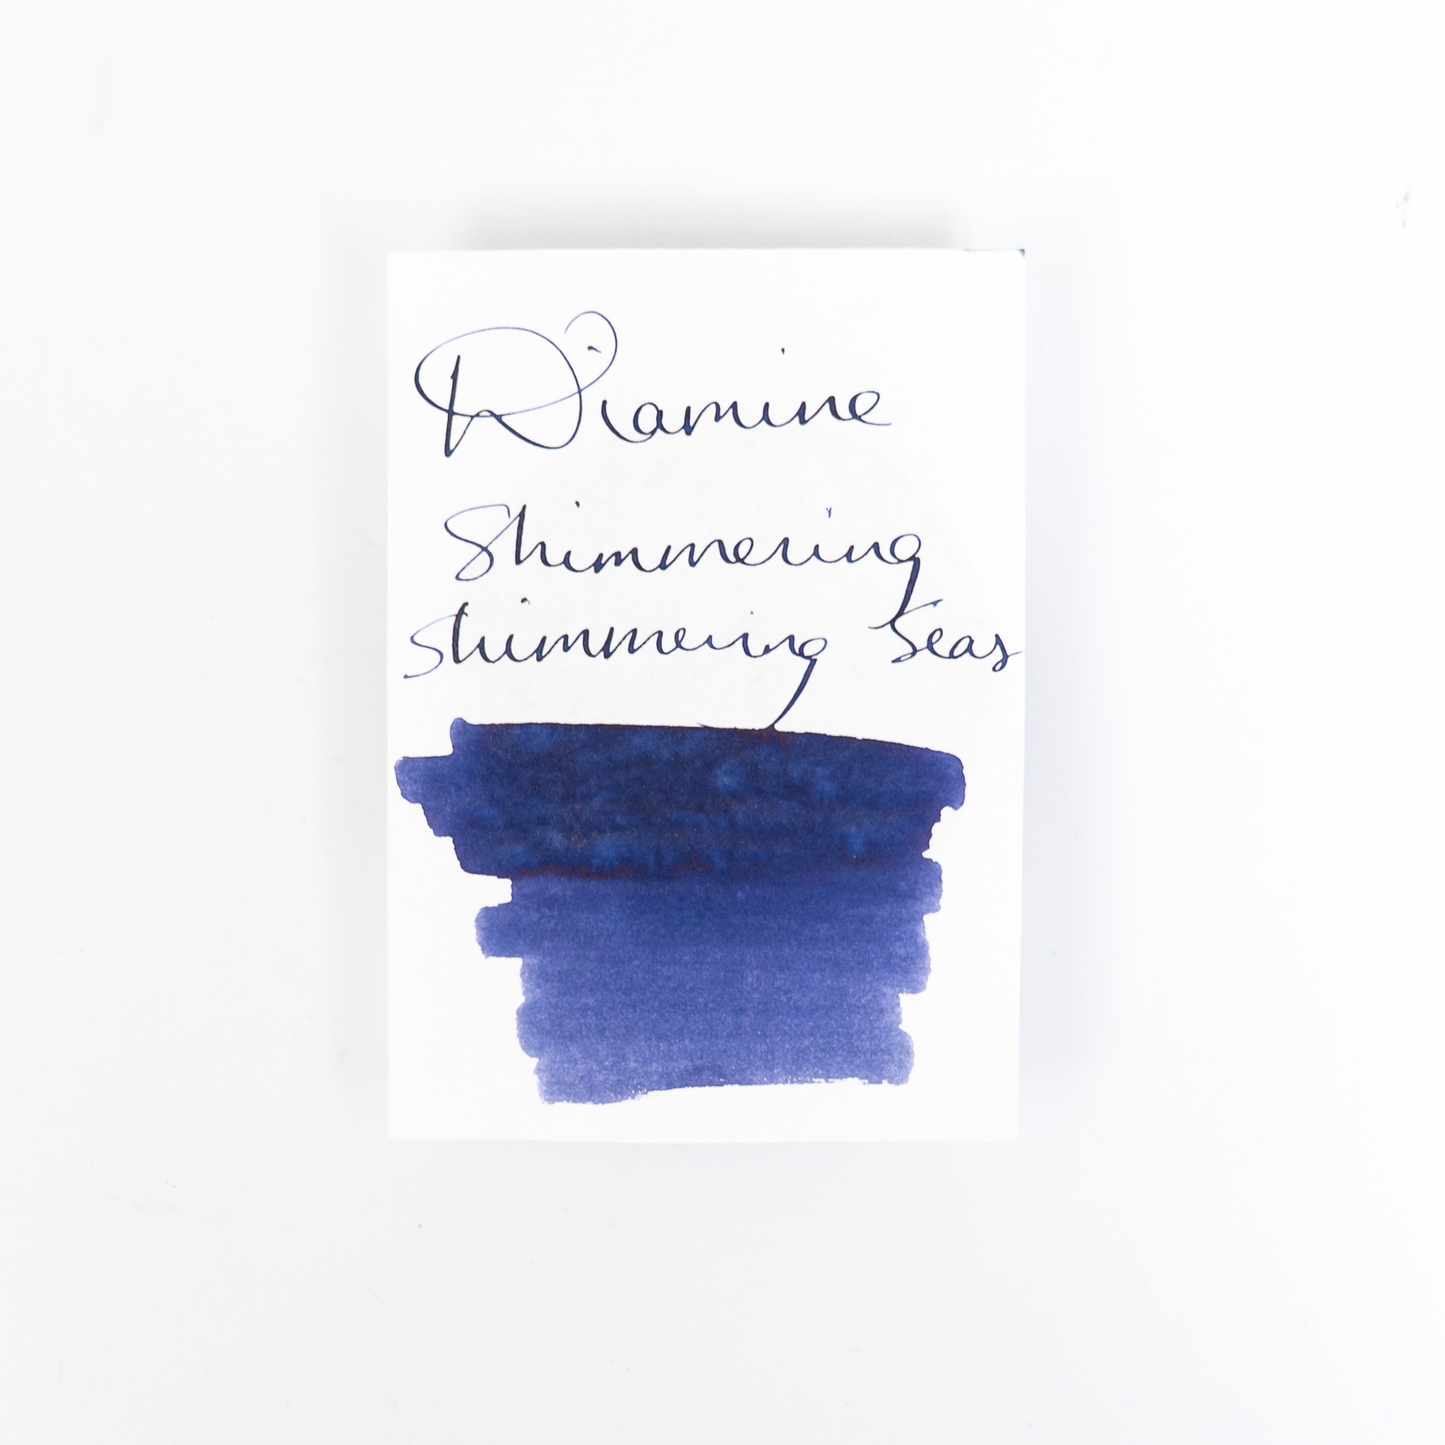 Diamine
Shimmering
Shimmering Seas